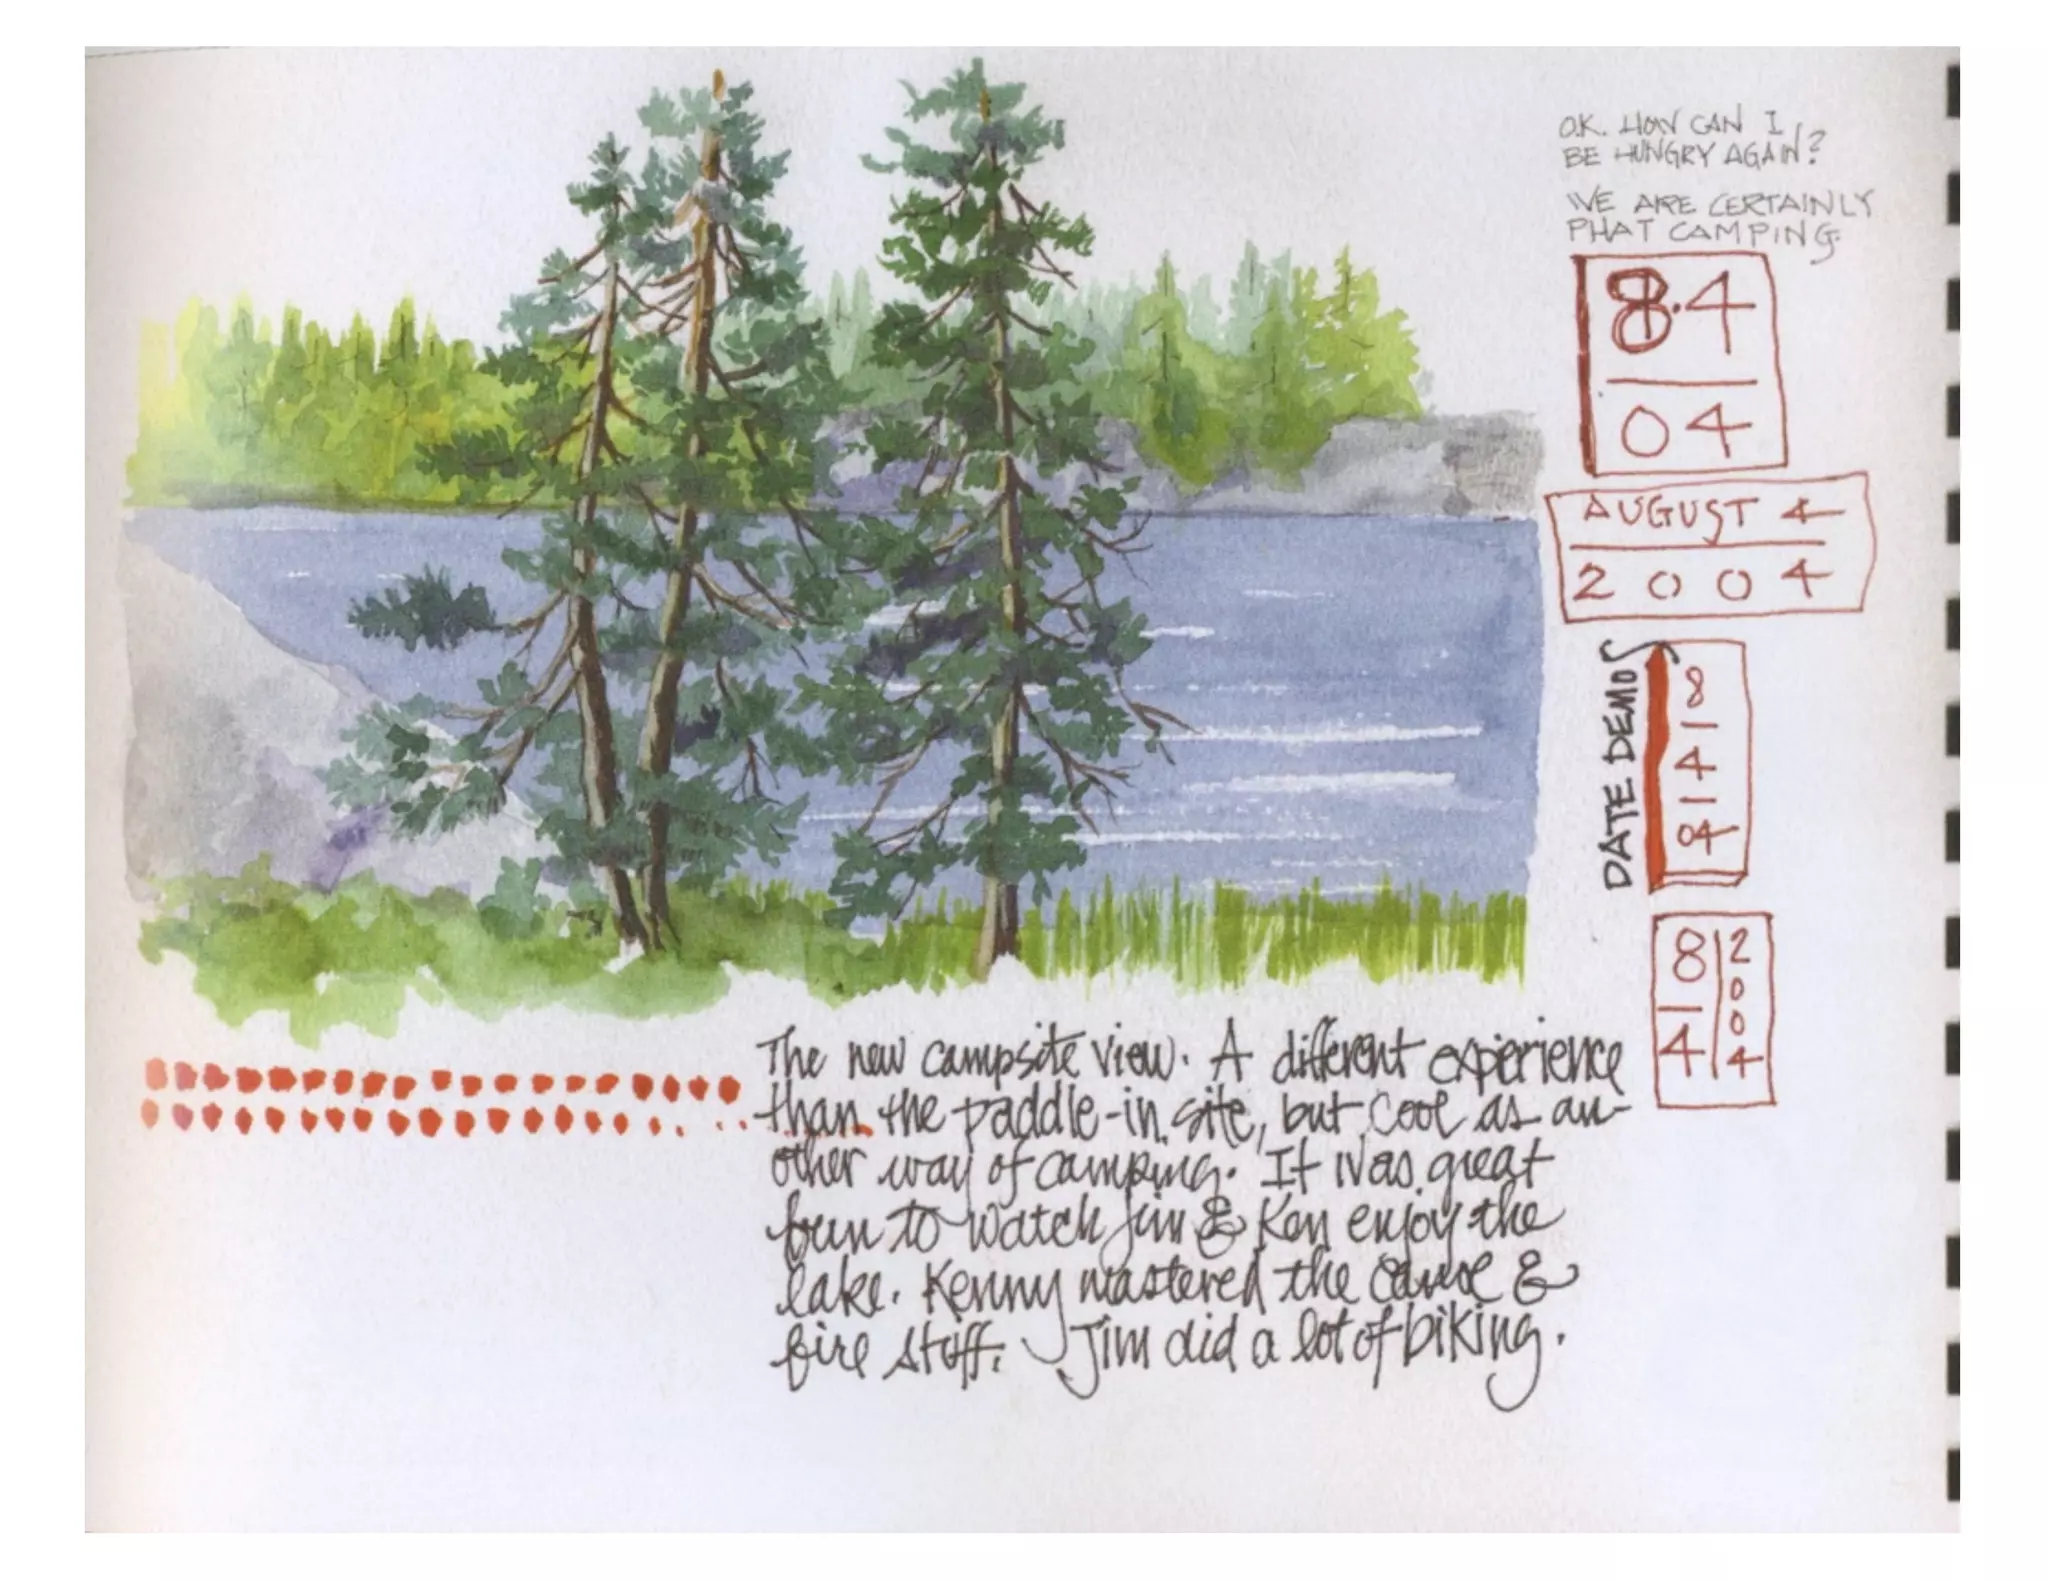 O.K. HOW CAN I
BE HUNGRY AGAIN?
WE ARE CERTAINLY
PHAT CAMPING.
8.4
04
AUGUST 4
2004
DATE DEMOS
8
4
04
8
4
2
0
0
4
The new campsite view. A different experience
than the paddle-in site, but cool as an-
other way of camping. It was great
fun to watch Jim & Ken enjoy the
lake. Kenny mastered the canoe &
fire stuff. Jim did a lot of biking.